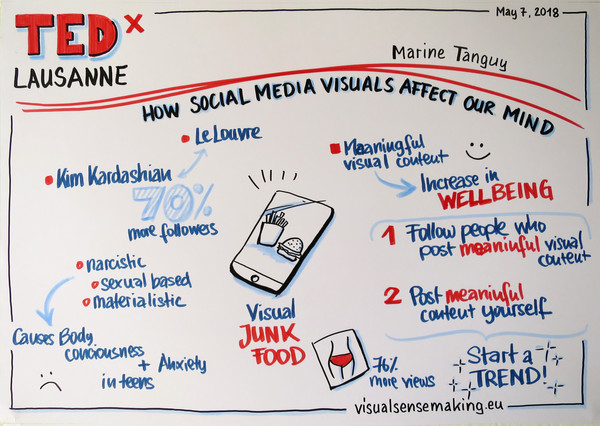 TEDx
LAUSANNE
May 7, 2018
Marine Tanguy
HOW SOCIAL MEDIA VISUALS AFFECT OUR MIND
Le Louvre
Kim Kardashian
70%
more followers
narcistic
sexual based
materialistic
Causes Body
conciousness
+ Anxiety
in teens
Visual
JUNK
FOOD
76%
more views
Meaningful
visual content
Increase in
WELLBEING
1 Follow people who
post meaninful visual
content
2 Post meaninful
content yourself
Start a
TREND!
visualsensemaking.eu